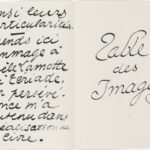 nsi leurs
rticularités.
rends ici
ommage à
èle Lamotte
Tériade,
perséve
nce m'a
utenu dans
éalisation de
livre.
Table
des
Images